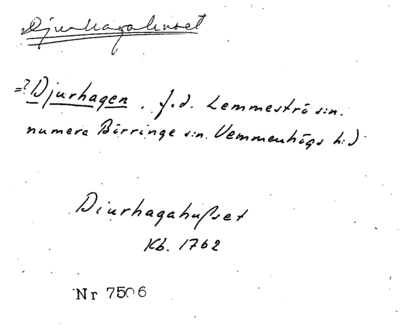 Djurhagahuset
=? Djurhagen, f.d. Lemmeströ s:n.
numera Börringe s:n. Vemmenhögs h:d
Diurhagahußet
Kb. 1762
Nr 7506